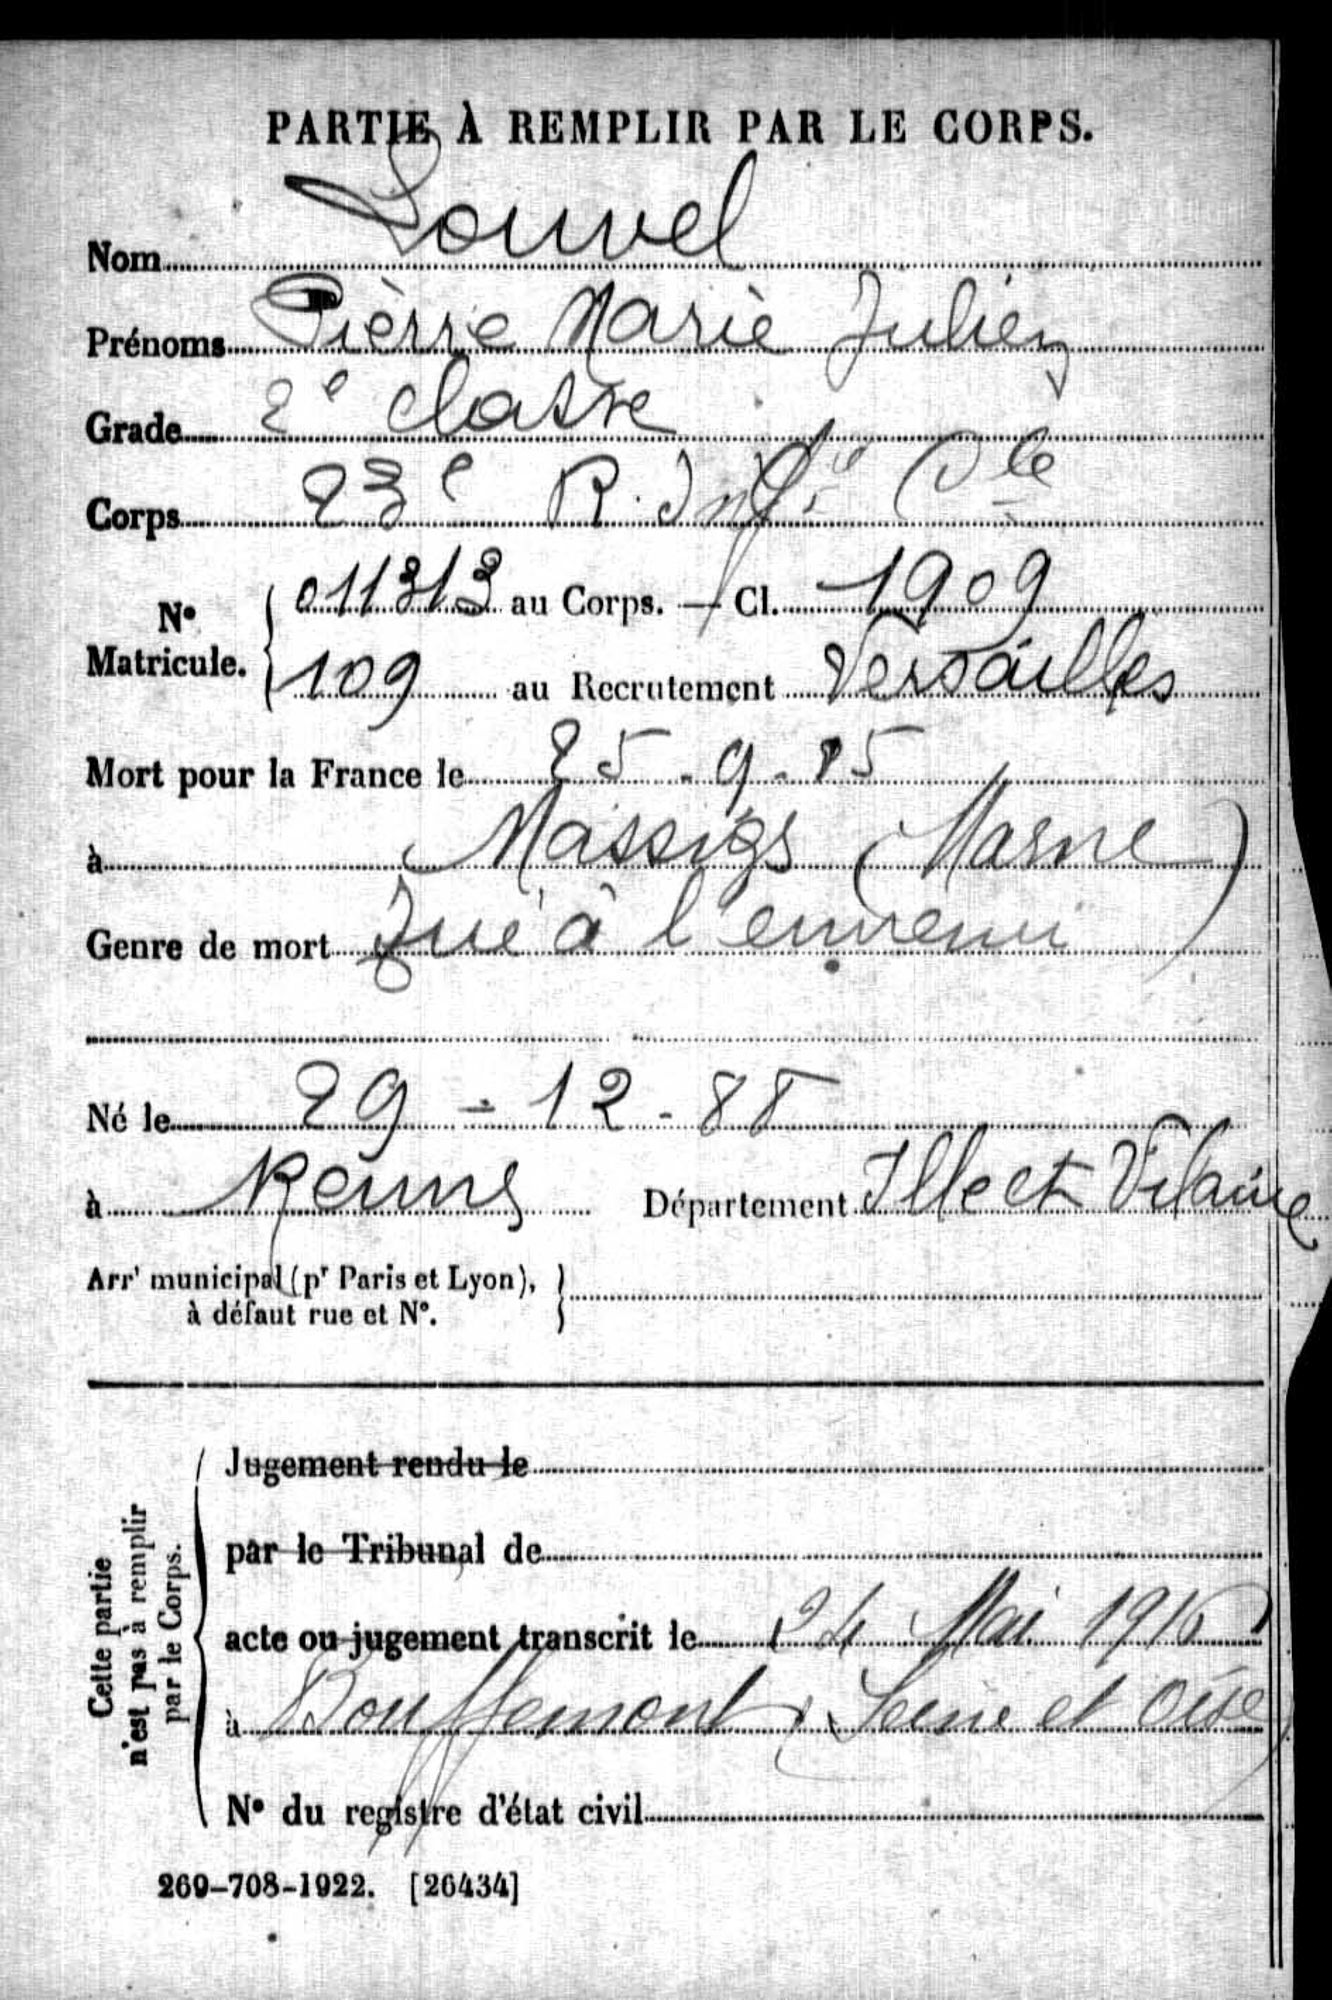 PARTIE À REMPLIR PAR LE CORPS.
Nom Louvel
Prénoms Pierre Marie Julien
Grade 2e classe
Corps 23e R. Infie Cle
No Matricule. 011313 au Corps. — Cl. 1909
109 au Recrutement Versailles
Mort pour la France le 25-9-15
à Massiges (Marne)
Genre de mort Tué à l'ennemi
Né le 29-12-88
à Rennes Département Ille et Vilaine
Arrt municipal (pr Paris et Lyon),
à défaut rue et No.
Cette partie n'est pas à remplir par le Corps.
Jugement rendu le
par le Tribunal de
acte ou jugement transcrit le 24 Mai 1916
à Bouffemont (Seine et Oise)
No du registre d'état civil
269-708-1922. [26434]